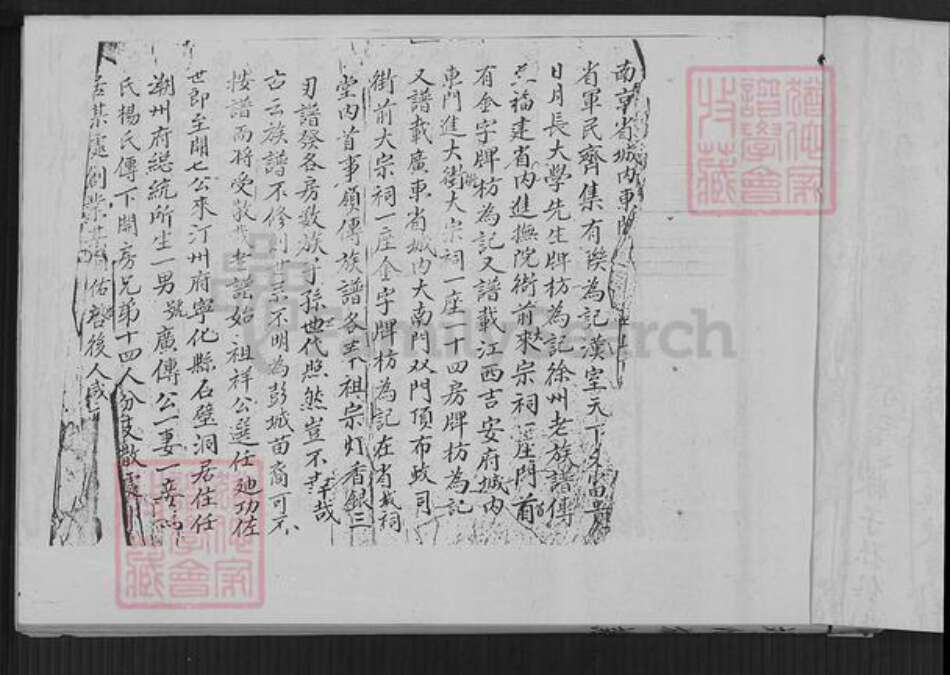 南京省城內東門
省軍民齊集有牌為記漢室天下
日月長大學先生牌坊為記徐州老族譜傳
福建省內進撫院衙前來大宗祠一座門前
有金字牌枋為記又譜載江西吉安府城內
東門進大街大宗祠一座一十四房牌枋為記
又譜載廣東省城內大南門双門頂布政司
街前大宗祠一座金字牌枋為記在省城祠
堂內首事領傳族譜各苄祖宗灯香銀三
刃譜發各房数族子孫世代照然豈不幸哉
古云族譜不修則世系不明為彭城苗裔可不
按譜而將受敬哉老譜始祖祥公選任廸功佐
世郎至開七公來汀州府寧化縣石壁洞居住任
潮州府總統所生一男號廣傳公二妻一
氏楊氏傳下開房兄弟十四人分支散處
某處創業 佑啓後人感
FamilySearch
譜學會
收藏